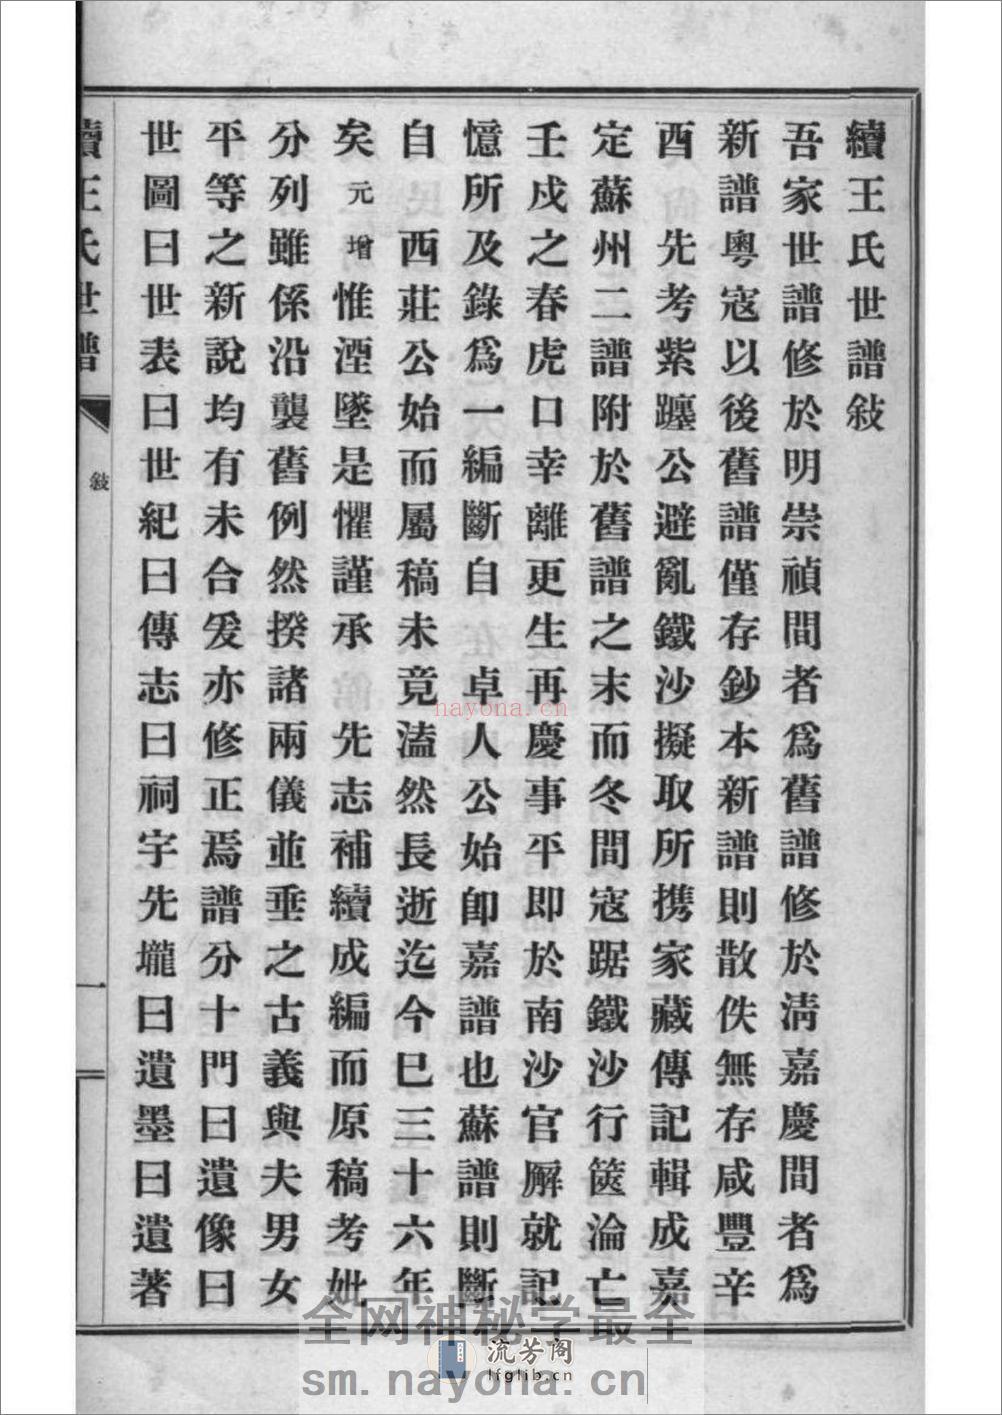 續王氏世譜敍
吾家世譜修於明崇禎間者爲舊譜修於清嘉慶間者爲
新譜粵寇以後舊譜僅存鈔本新譜則散佚無存咸豐辛
酉　先考紫躔公避亂鐵沙擬取所携家藏傳記輯成嘉
定蘇州二譜附於舊譜之末而冬間寇踞鐵沙行篋淪亡
壬戍之春虎口幸離更生再慶事平即於南沙官廨就記
憶所及錄爲一編斷自　卓人公始卽嘉譜也蘇譜則斷
自　西莊公始而屬稿未竟溘然長逝迄今巳三十六年
矣元增惟湮墜是懼謹承　先志補續成編而原稿考妣
分列雖係沿襲舊例然揆諸兩儀並垂之古義與夫男女
平等之新說均有未合爰亦修正焉譜分十門曰遺像曰
世圖曰世表曰世紀曰傳志曰祠宇先壠曰遺墨曰遺著
續王氏世譜
敍
一
nayona.cn
全网神秘学最全
流芳阁
lfglib.cn
sm.nayona.cn